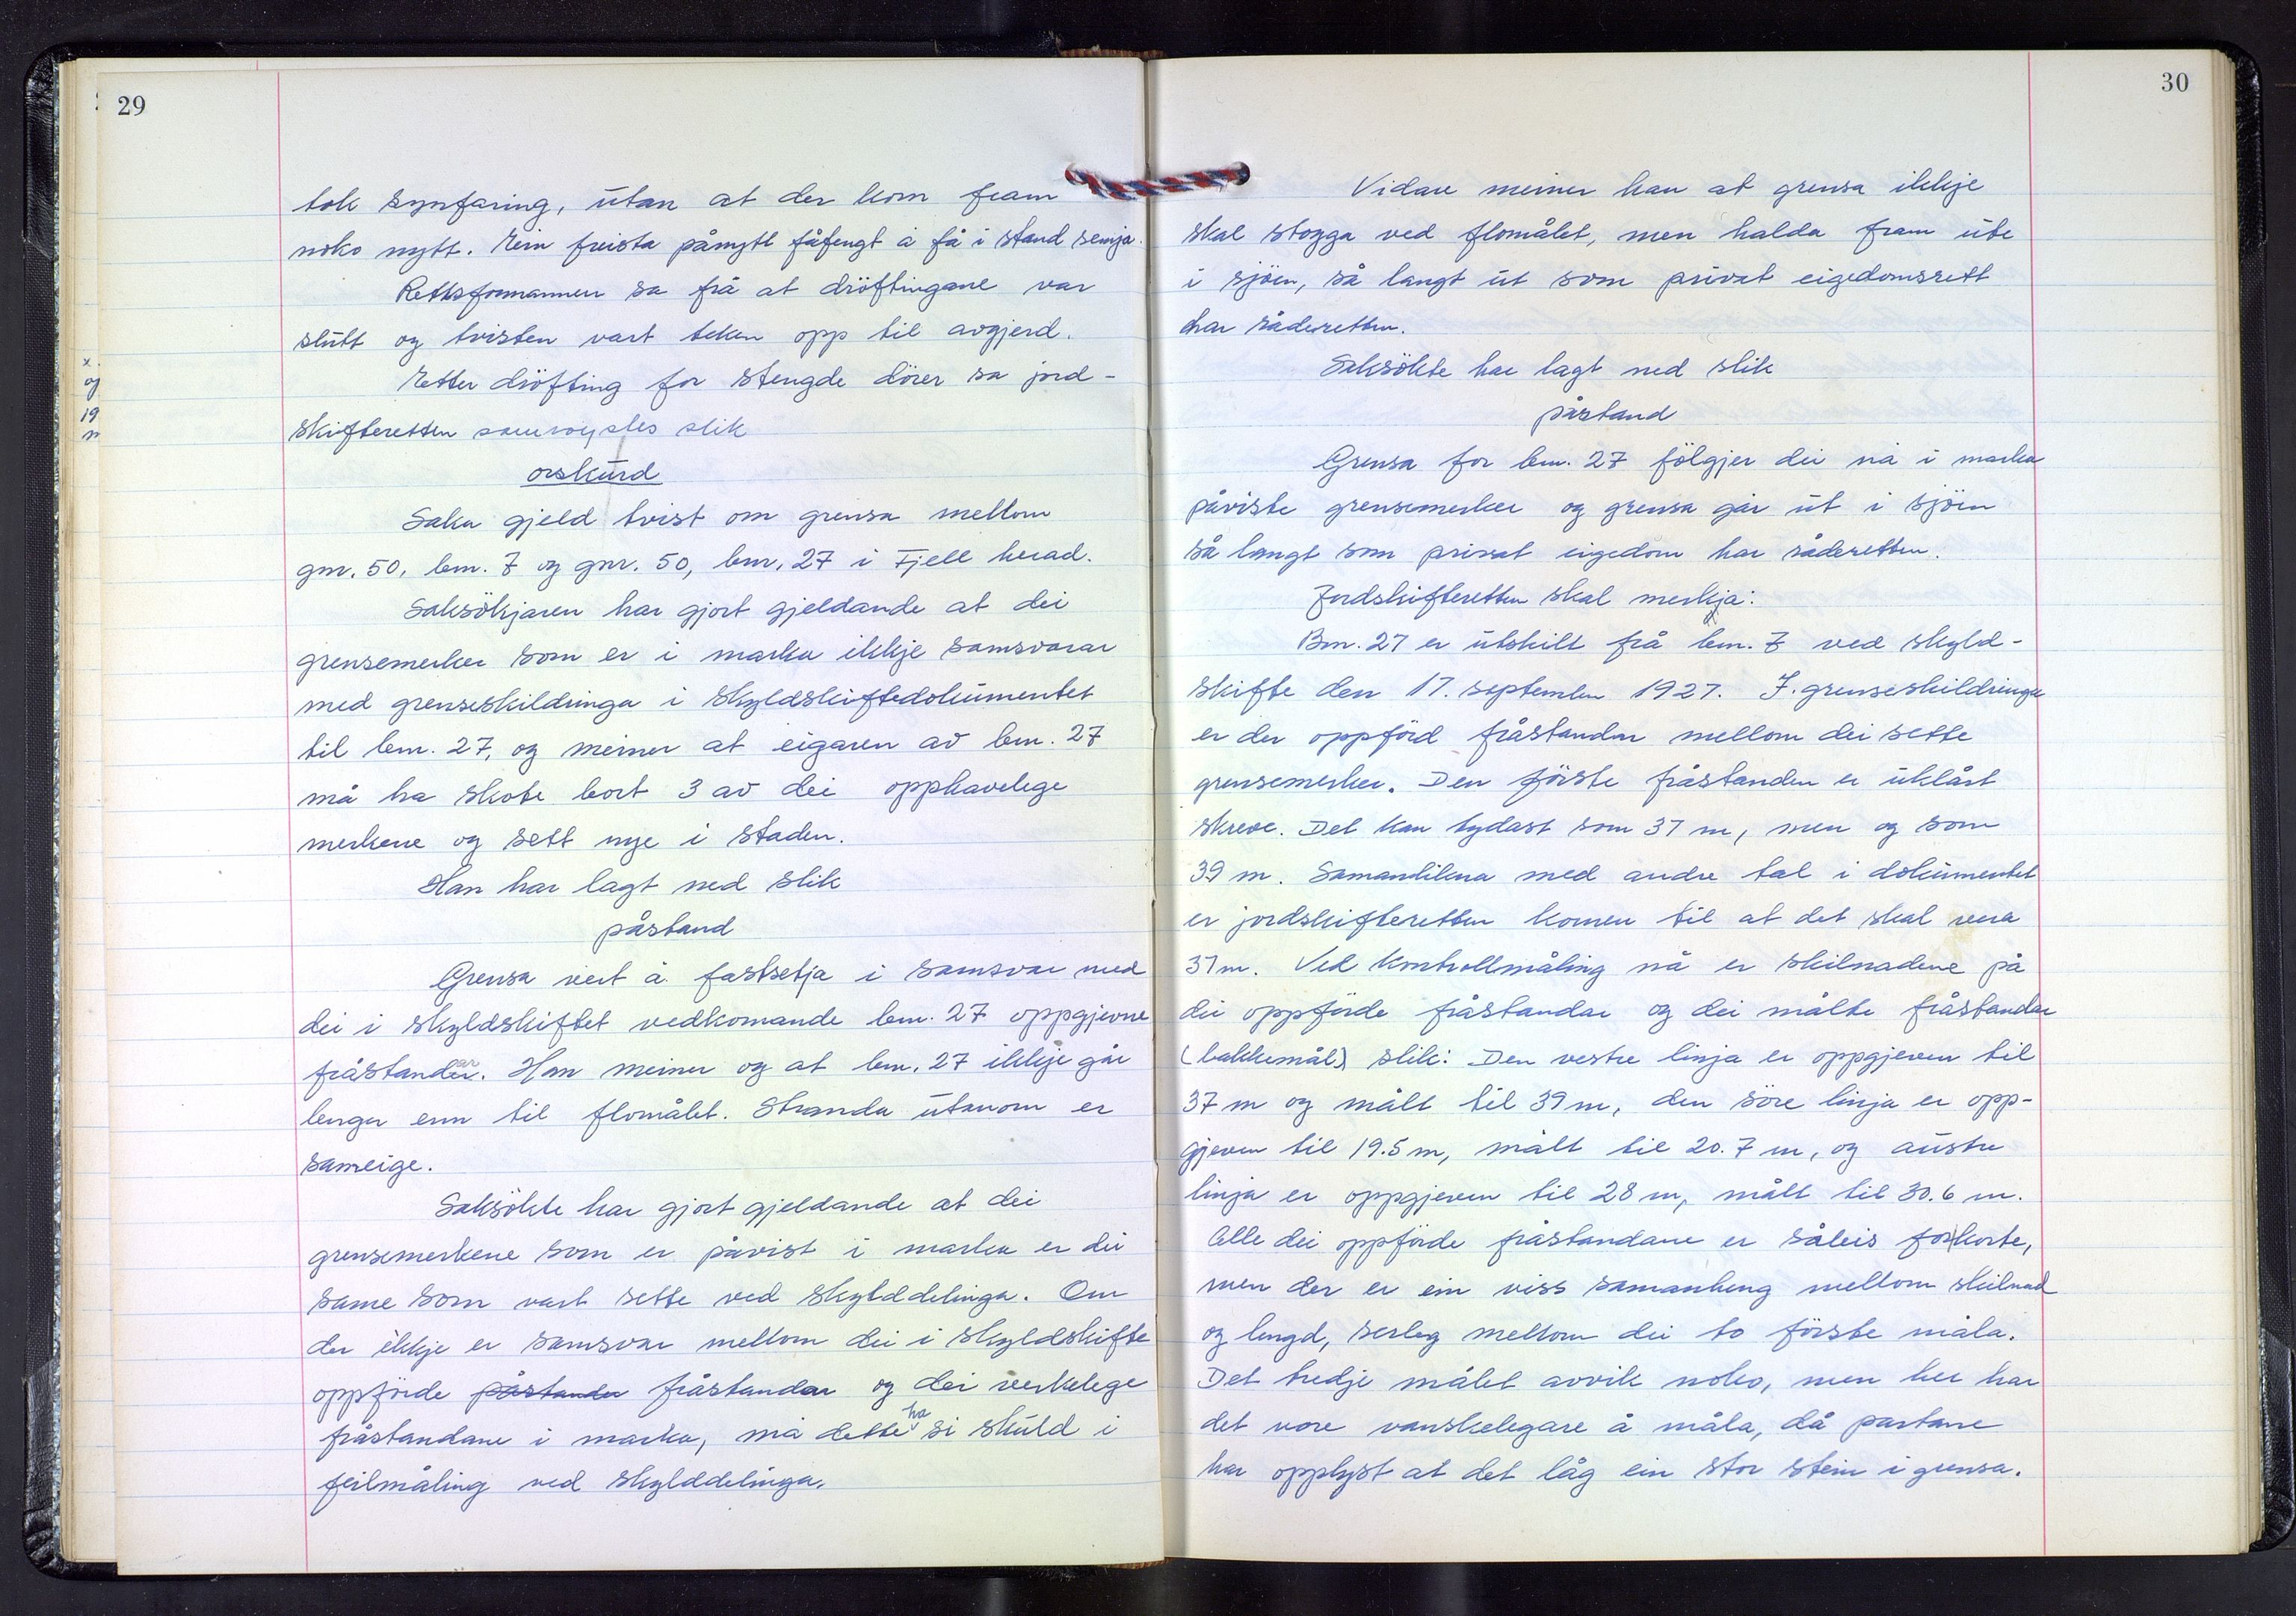 29
tok synfaring, utan at der kom fram
noko nytt. Ein freista pånytt fåfengt å få i stand semja.
Rettsformannen sa frå at dröftingane var
slutt og tvisten vart teken opp til avgjerd.
Etter dröfting for stengde dörer sa jord-
skifteretten samröystes slik
orskurd
Saka gjeld tvist om grensa mellom
gnr. 50, bnr. 7 og gnr. 50, bnr. 27 i Fjell herad.
Saksökjaren har gjort gjeldande at dei
grensemerker som er i marka ikkje samsvarar
med grenseskildringa i skyldskiftedokumentet
til bnr. 27, og meiner at eigaren av bnr. 27
må ha skote bort 3 av dei opphavelege
merkene og sett nye i staden.
Han har lagt ned slik
påstand
Grensa vert å fastsetja i samsvar med
dei i skyldskiftet vedkomande bnr. 27 oppgjevne
fråstandar. Han meiner og at bnr. 27 ikkje går
lenger enn til flomålet. Stranda utanom er
sameige.
Saksökte har gjort gjeldande at dei
grensemerkene som er påvist i marka er dei
same som vart sette ved skylddelinga. Om
der ikkje er samsvar mellom dei i skyldskifte
oppförde påstander fråstandar og dei verkelege
fråstandane i marka, må dette ha si skuld i
feilmåling ved skylddelinga.
x.
og
19
m
30
Vidare meiner han at grensa ikkje
skal stogga ved flomålet, men halda fram ute
i sjöen, så langt ut som privat eigedomsrett
har råderetten.
Saksökte har lagt ned slik
påstand
Grensa for bnr. 27 fölgjer dei nå i marka
påviste grensemerker og grensa går ut i sjöen
så langt som privat eigedom har råderetten.
Jordskifteretten skal merkja:
Bnr. 27 er utskilt frå bnr. 7 ved skyld-
skifte den 17. september 1927. I grenseskildringa
er der oppförd fråstandar mellom dei sette
grensemerker. Den förste fråstanden er uklårt
skreve. Det kan tydast som 37 m, men og som
39 m. Samanlikna med andre tal i dokumentet
er jordskifteretten komen til at det skal vera
37 m. Ved kontrollmåling nå er skilnadene på
dei oppförde fråstandar og dei målte fråstandar
(bakkemål) slik: Den vestre linja er oppgjeven til
37 m og målt til 39 m, den söre linja er opp-
gjeven til 19.5 m, målt til 20.7 m, og austre
linja er oppgjeven til 28 m, målt til 30.6 m.
Alle dei oppförde fråstandane er såleis for korte,
men der er ein viss samanheng mellom skilnad
og lengd, serleg mellom dei to förste måla.
Det tredje målet avvik noko, men her har
det vore vanskelegare å måla, då partane
har opplyst at det låg ein stor stein i grensa.